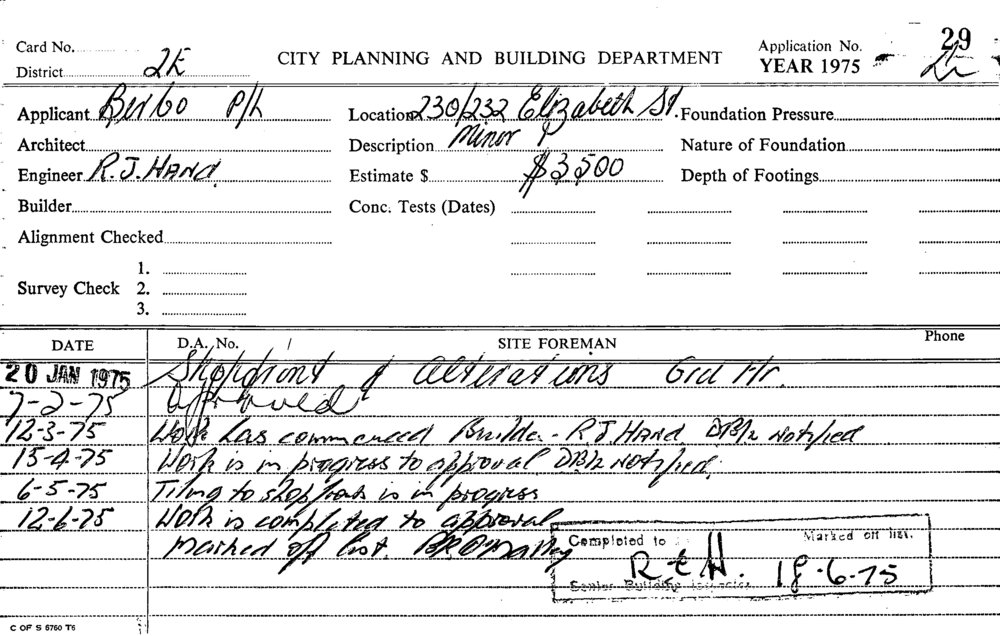 Card No.
District 2E
CITY PLANNING AND BUILDING DEPARTMENT
Application No. 29
YEAR 1975
Applicant Berbo P/L
Location 230/232 Elizabeth St.
Foundation Pressure
Architect
Description Minor P
Nature of Foundation
Engineer R.J. HAND
Estimate $ $3500
Depth of Footings
Builder
Conc. Tests (Dates)
Alignment Checked
Survey Check
1.
2.
3.
DATE D.A. No. / SITE FOREMAN Phone
20 JAN 1975 Shopfront & Alterations Grd Flr.
7-2-75 Approved
12-3-75 Work has commenced Builder - R J HAND notified
15-4-75 Work is in progress to approval notified.
6-5-75 Tiling to shopfront is in progress
12-6-75 Work is completed to approval
Marked off list.
Completed to Marked off list.
18-6-75
Senior Building
C OF S 6760 T6